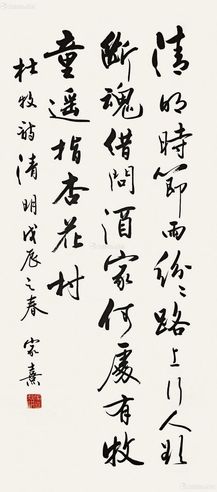 清明時節雨紛〻路上行人欲
断魂借問酒家何處有牧
童遥指杏花村
杜牧詩清明戊辰之春 家熹